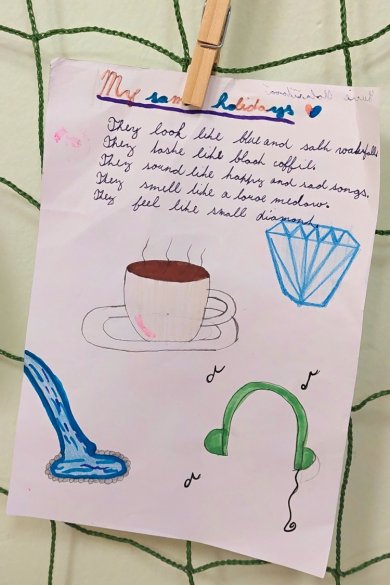 My sam holidays
They look like blue and salt waterfalls.
They taste like blach coffii.
They sound like happy and sad songs.
They smell like a lovose medow.
They feel like small diamond